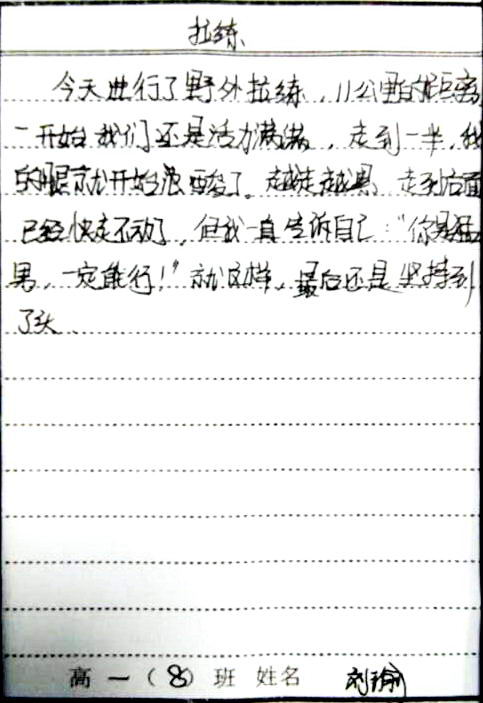 拉练
今天进行了野外拉练,11公里的距离
一开始我们还是活力满满,走到一半,我
的腿就开始很酸了。越走越累,走到后面
已经快走不动了,但我一直告诉自己:“你是
男,一定能行!”就这样,最后还是坚持到
了头.
高一(8)班 姓名 刘瑜